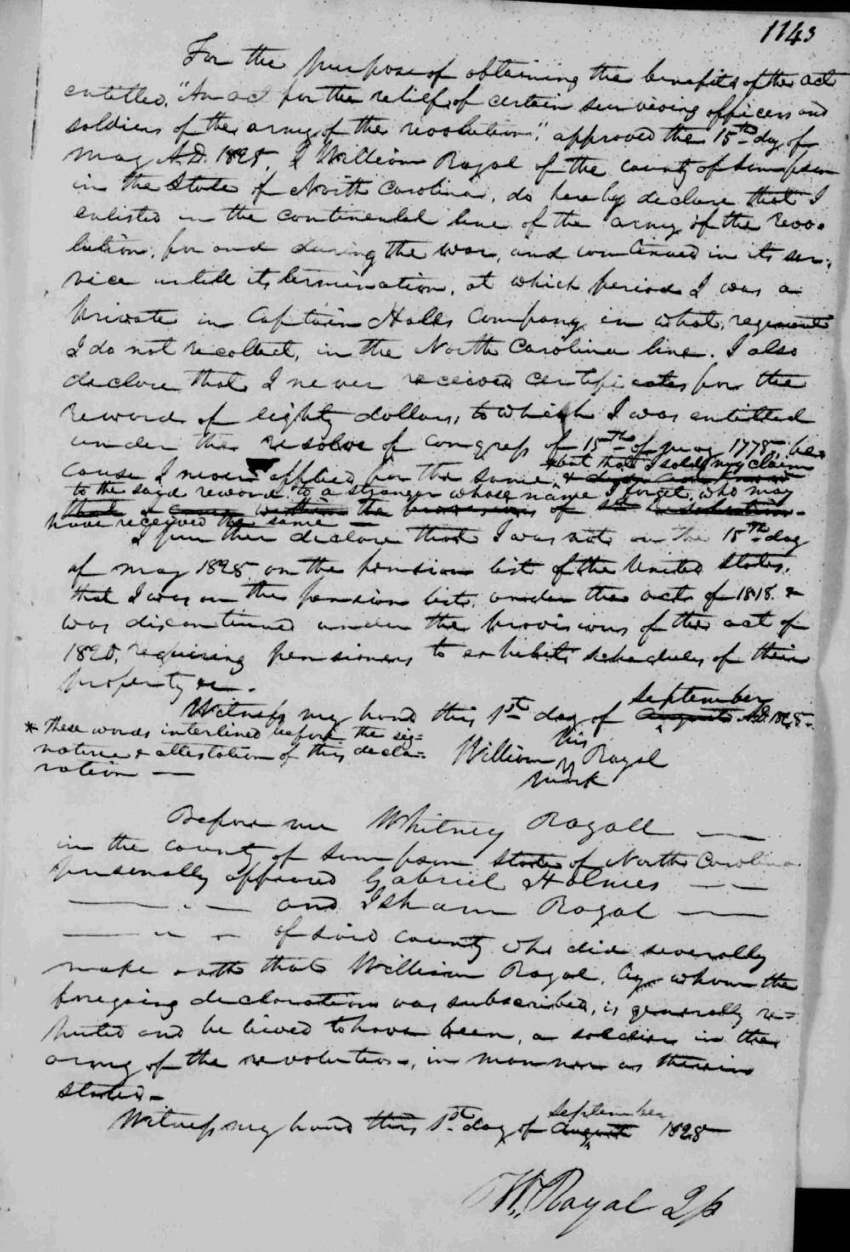 1143
For the purpose of obtaining the benefits of the act
entitled, "An act for the relief of certain surviving officers and
soldiers of the army of the revolution", approved the 15th day of
may A.D. 1828, I William Royal of the county of Sampson
in the State of North Carolina, do hereby declare that I
enlisted in the continental line of the army of the revo-
lution, for and during the war, and continued in its ser-
vice untill its termination, at which period I was a
private in Captain Halls Company in what regiment
I do not recollect, in the North Carolina line. I also
declare that I never received certificates for the
reward of eighty dollars, to which I was entitled
under the resolve of congress of 15th of may 1778, be-
*but that I sold my claim
cause I never applied for the same,
to the said reward to a stranger whose name I forget, who may
the provisions of
have received the same —
I further declare that I was not on the 15th day
of may 1828 on the pension list of the United States,
that I was on the pension list, under the act of 1818 &
was discontinued under the provisions of the act of
1820, requiring pensioners to exhibit schedules of their
property &c.
September
Witness my hand this 1st day of August AD. 1828.
* These words interlined before the sig-
nature & attestation of this decla-
ration —
his
William Royal
mark
Before me Whitney Royall —
in the county of Sampson State of North Carolina
personally appeared Gabriel Holmes — —
and Isham Royal —
of said county who did severally
make oath that William Royal, by whom the
foregoing declaration was subscribed, is generally re-
puted and believed to have been, a soldier in the
army of the revolution, in manner as therein
stated.
September
Witness my hand this 1st day of August 1828
W. Royal